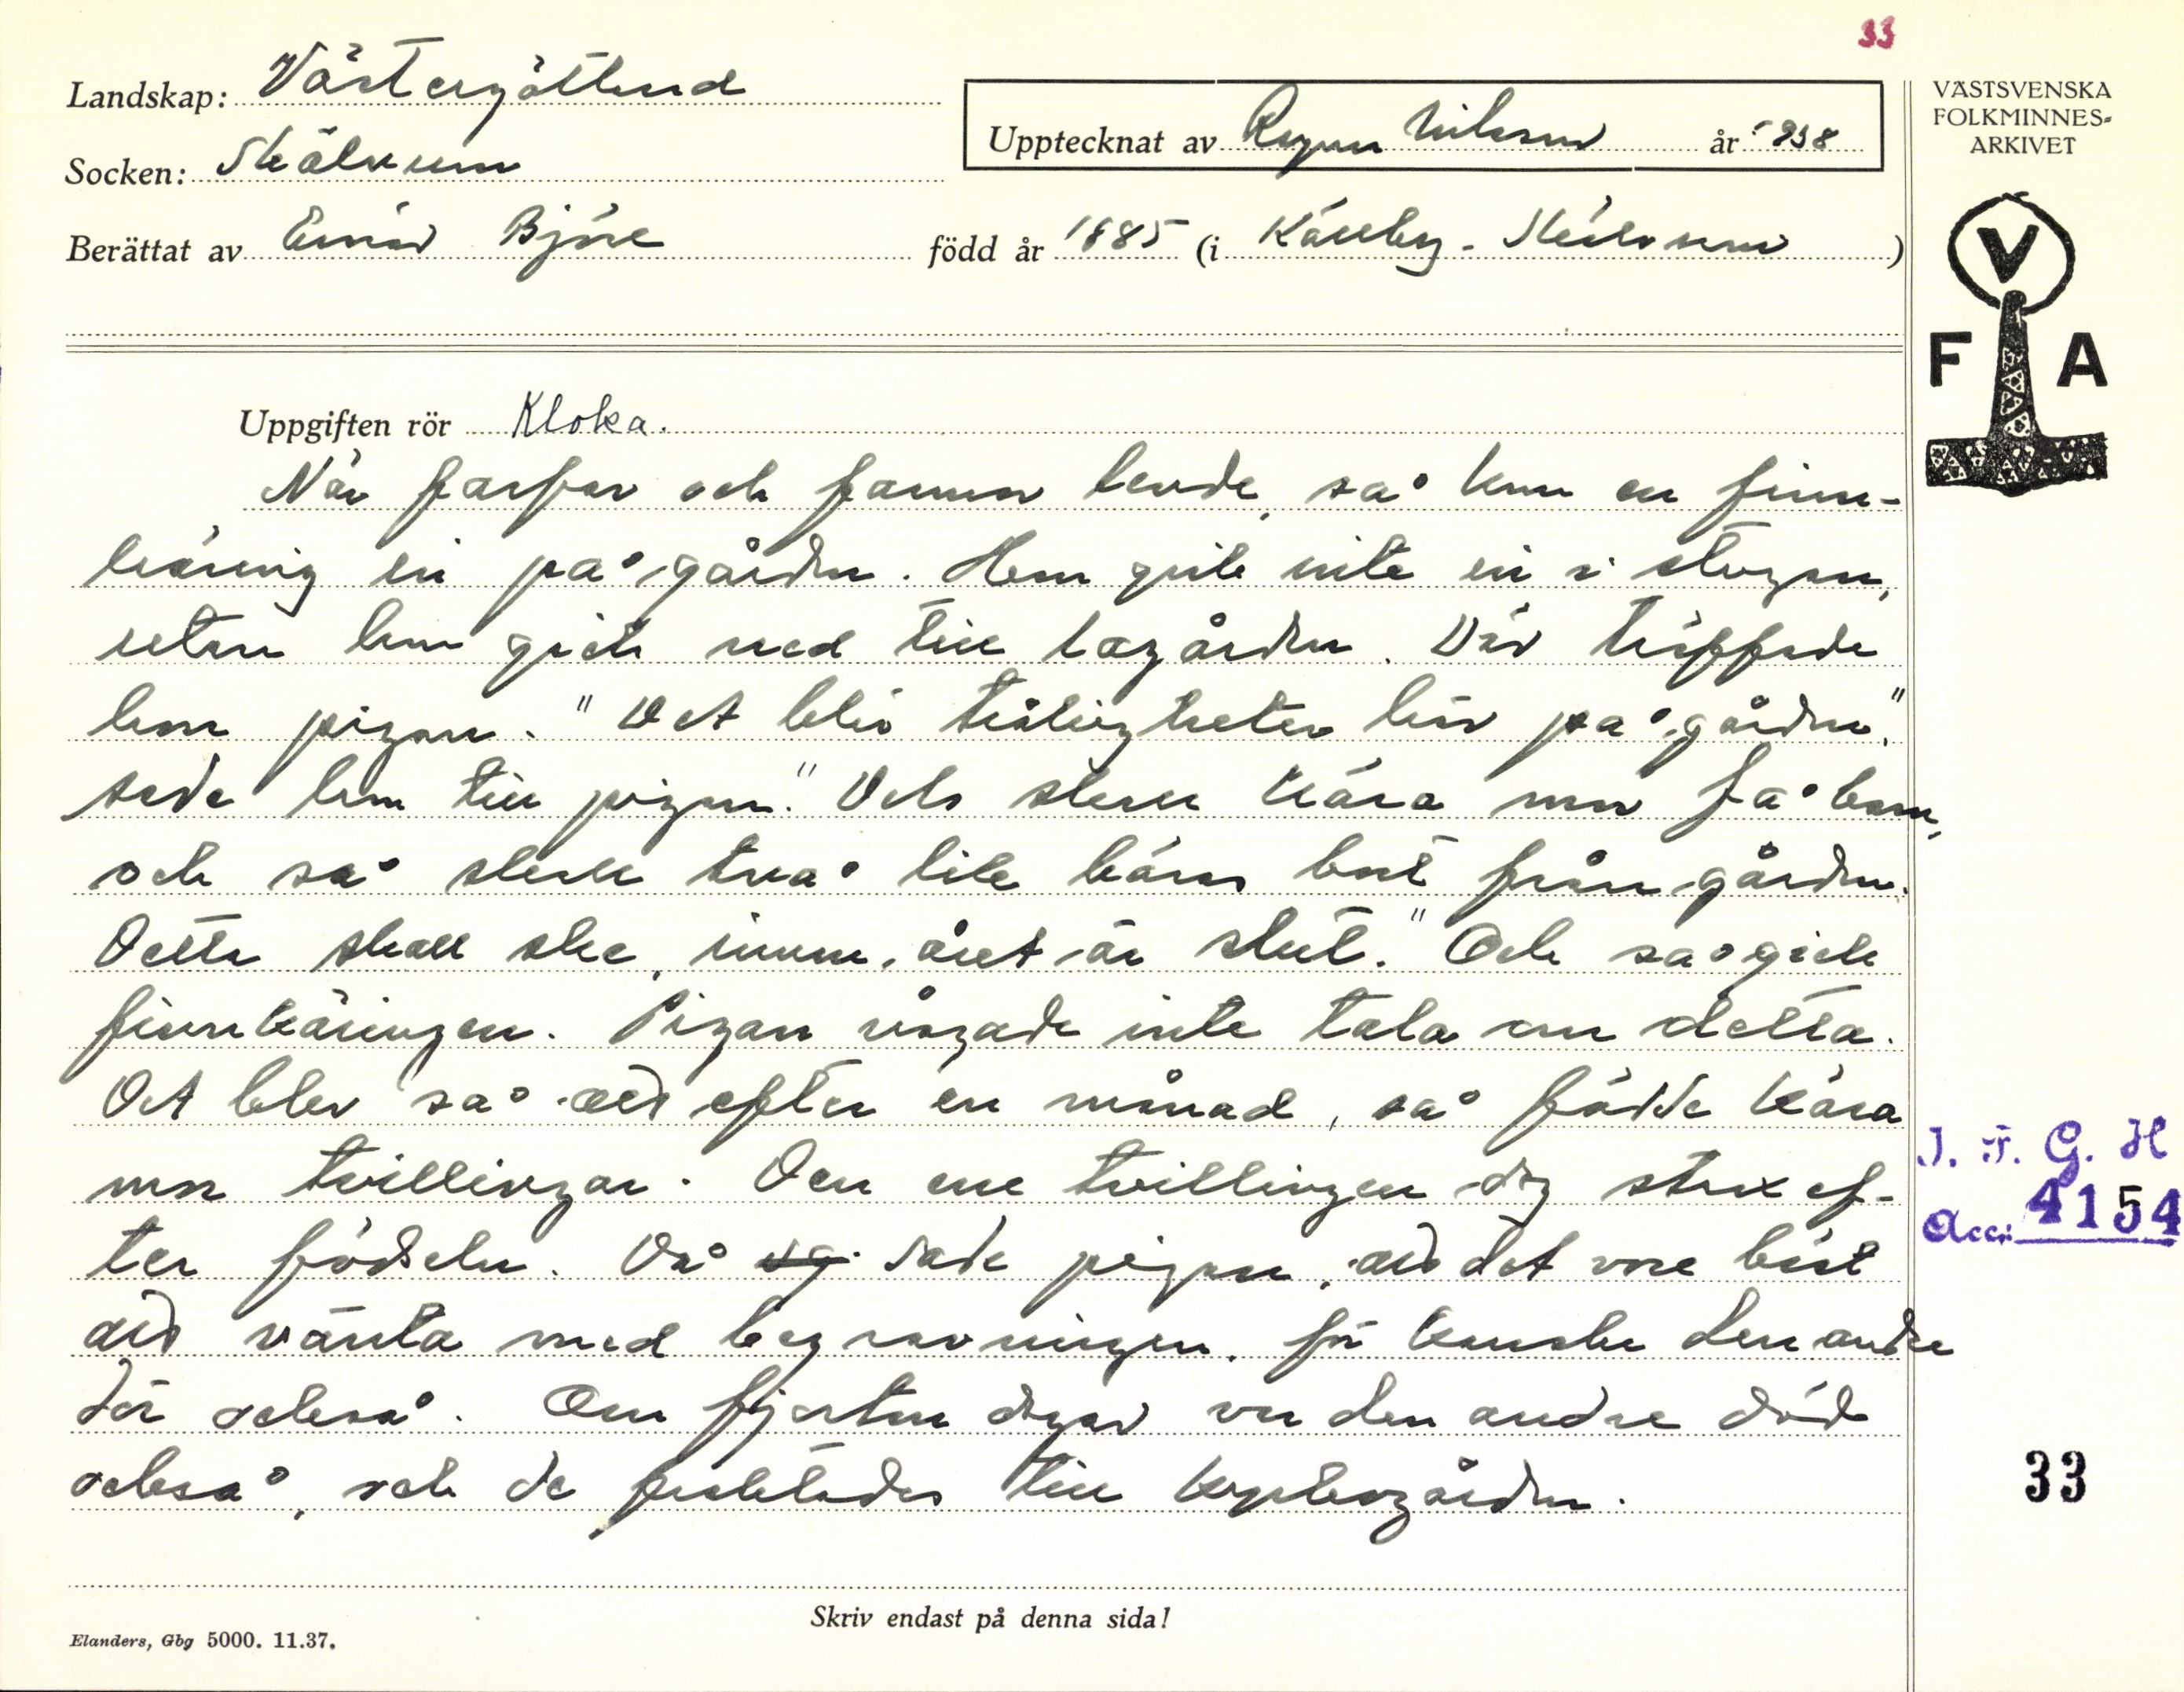 33
Landskap: Västergötland
Socken: Skälvum
Upptecknat av Ragnar Nilsson år 1938
Berättat av Einar Björk född år 1885 (i Källby - Skälvum)
VÄSTSVENSKA
FOLKMINNES-
ARKIVET
V
F A
Uppgiften rör Kloka.
När farfar och farmor levde, så kom en finn-
käring in på gården. Hon gick inte in i stugan,
utan hon gick ned till lagården. Där träffade
hon pigan. "Det blir tråkigheter här på gården,"
sade hon till pigan. "Och skall kära mor få barn,
och så skall två lik bäras bort från gården.
Detta skall ske, innan året är slut." Och så gick
finnkäringen. Pigan vågade inte tala om detta.
Det blev så att efter en månad, så födde kära
mor tvillingar. Den ene tvillingen dog strax ef-
ter födseln. Då sg sade pigan, att det vore bäst
att vänta med begravningen, för kanske den andre
dör också. Om fjorton dagar var den andre död
också, och de forslades till kyrkogården.
I. F. G. H
Acc: 4154
33
Skriv endast på denna sida!
Elanders, Gbg 5000. 11.37.